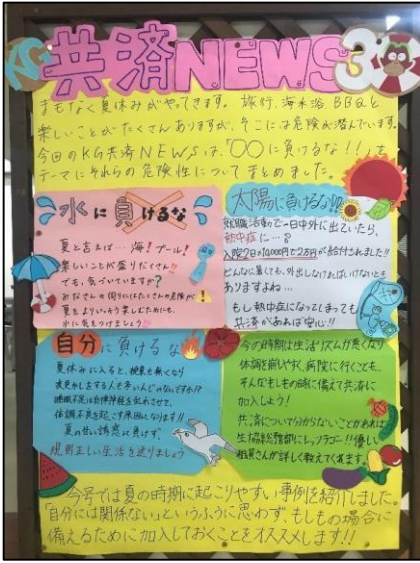 KG共済NEWS 3
まもなく夏休みがやってきます。旅行、海水浴、BBQと
楽しいことがたくさんありますが、そこには危険が潜んでいます。
今回のKG共済NEWSは、「〇〇に負けるな!!」を
テーマにそれらの危険性についてまとめました。
水に負けるな
夏と言えば…海!プール!
楽しいことが盛りだくさん
でも、気づいていますか?
みなさんの周りにはたくさんの危険が
夏をよりいっそう楽しむためにも、
水に気をつけましょう
太陽に負けるな!!
就職活動で一日中外に出ていたら、
熱中症に…?
入院2日(10,000円で2万円が給付されました!!
どんなに暑くても、外出しなければいけないとき
ありますよね…
もし熱中症になってしまっても
共済があれば安心!!
自分に負けるな
夏休みに入ると、授業も無くなり
夜更かしをする人も多いんじゃないですか!?
睡眠不足は自律神経を乱れさせて、
体調不良を起こす原因になります!!
夏の甘い誘惑に負けず、
規則正しい生活を送りましょう
今の時期は生活リズムが悪くなり
体調を崩しやすく、病院に行くことも…
そんなもしもの時に備えて共済に
加入しよう!
共済について分からないことがあれば
生協総務部にレッツラゴー!!優しい
職員さんが詳しく教えてくれます。
今号では夏の時期に起こりやすい事例を紹介しました。
「自分には関係ない」というふうに思わず、もしもの場合に
備えるために加入しておくことをオススメします!!